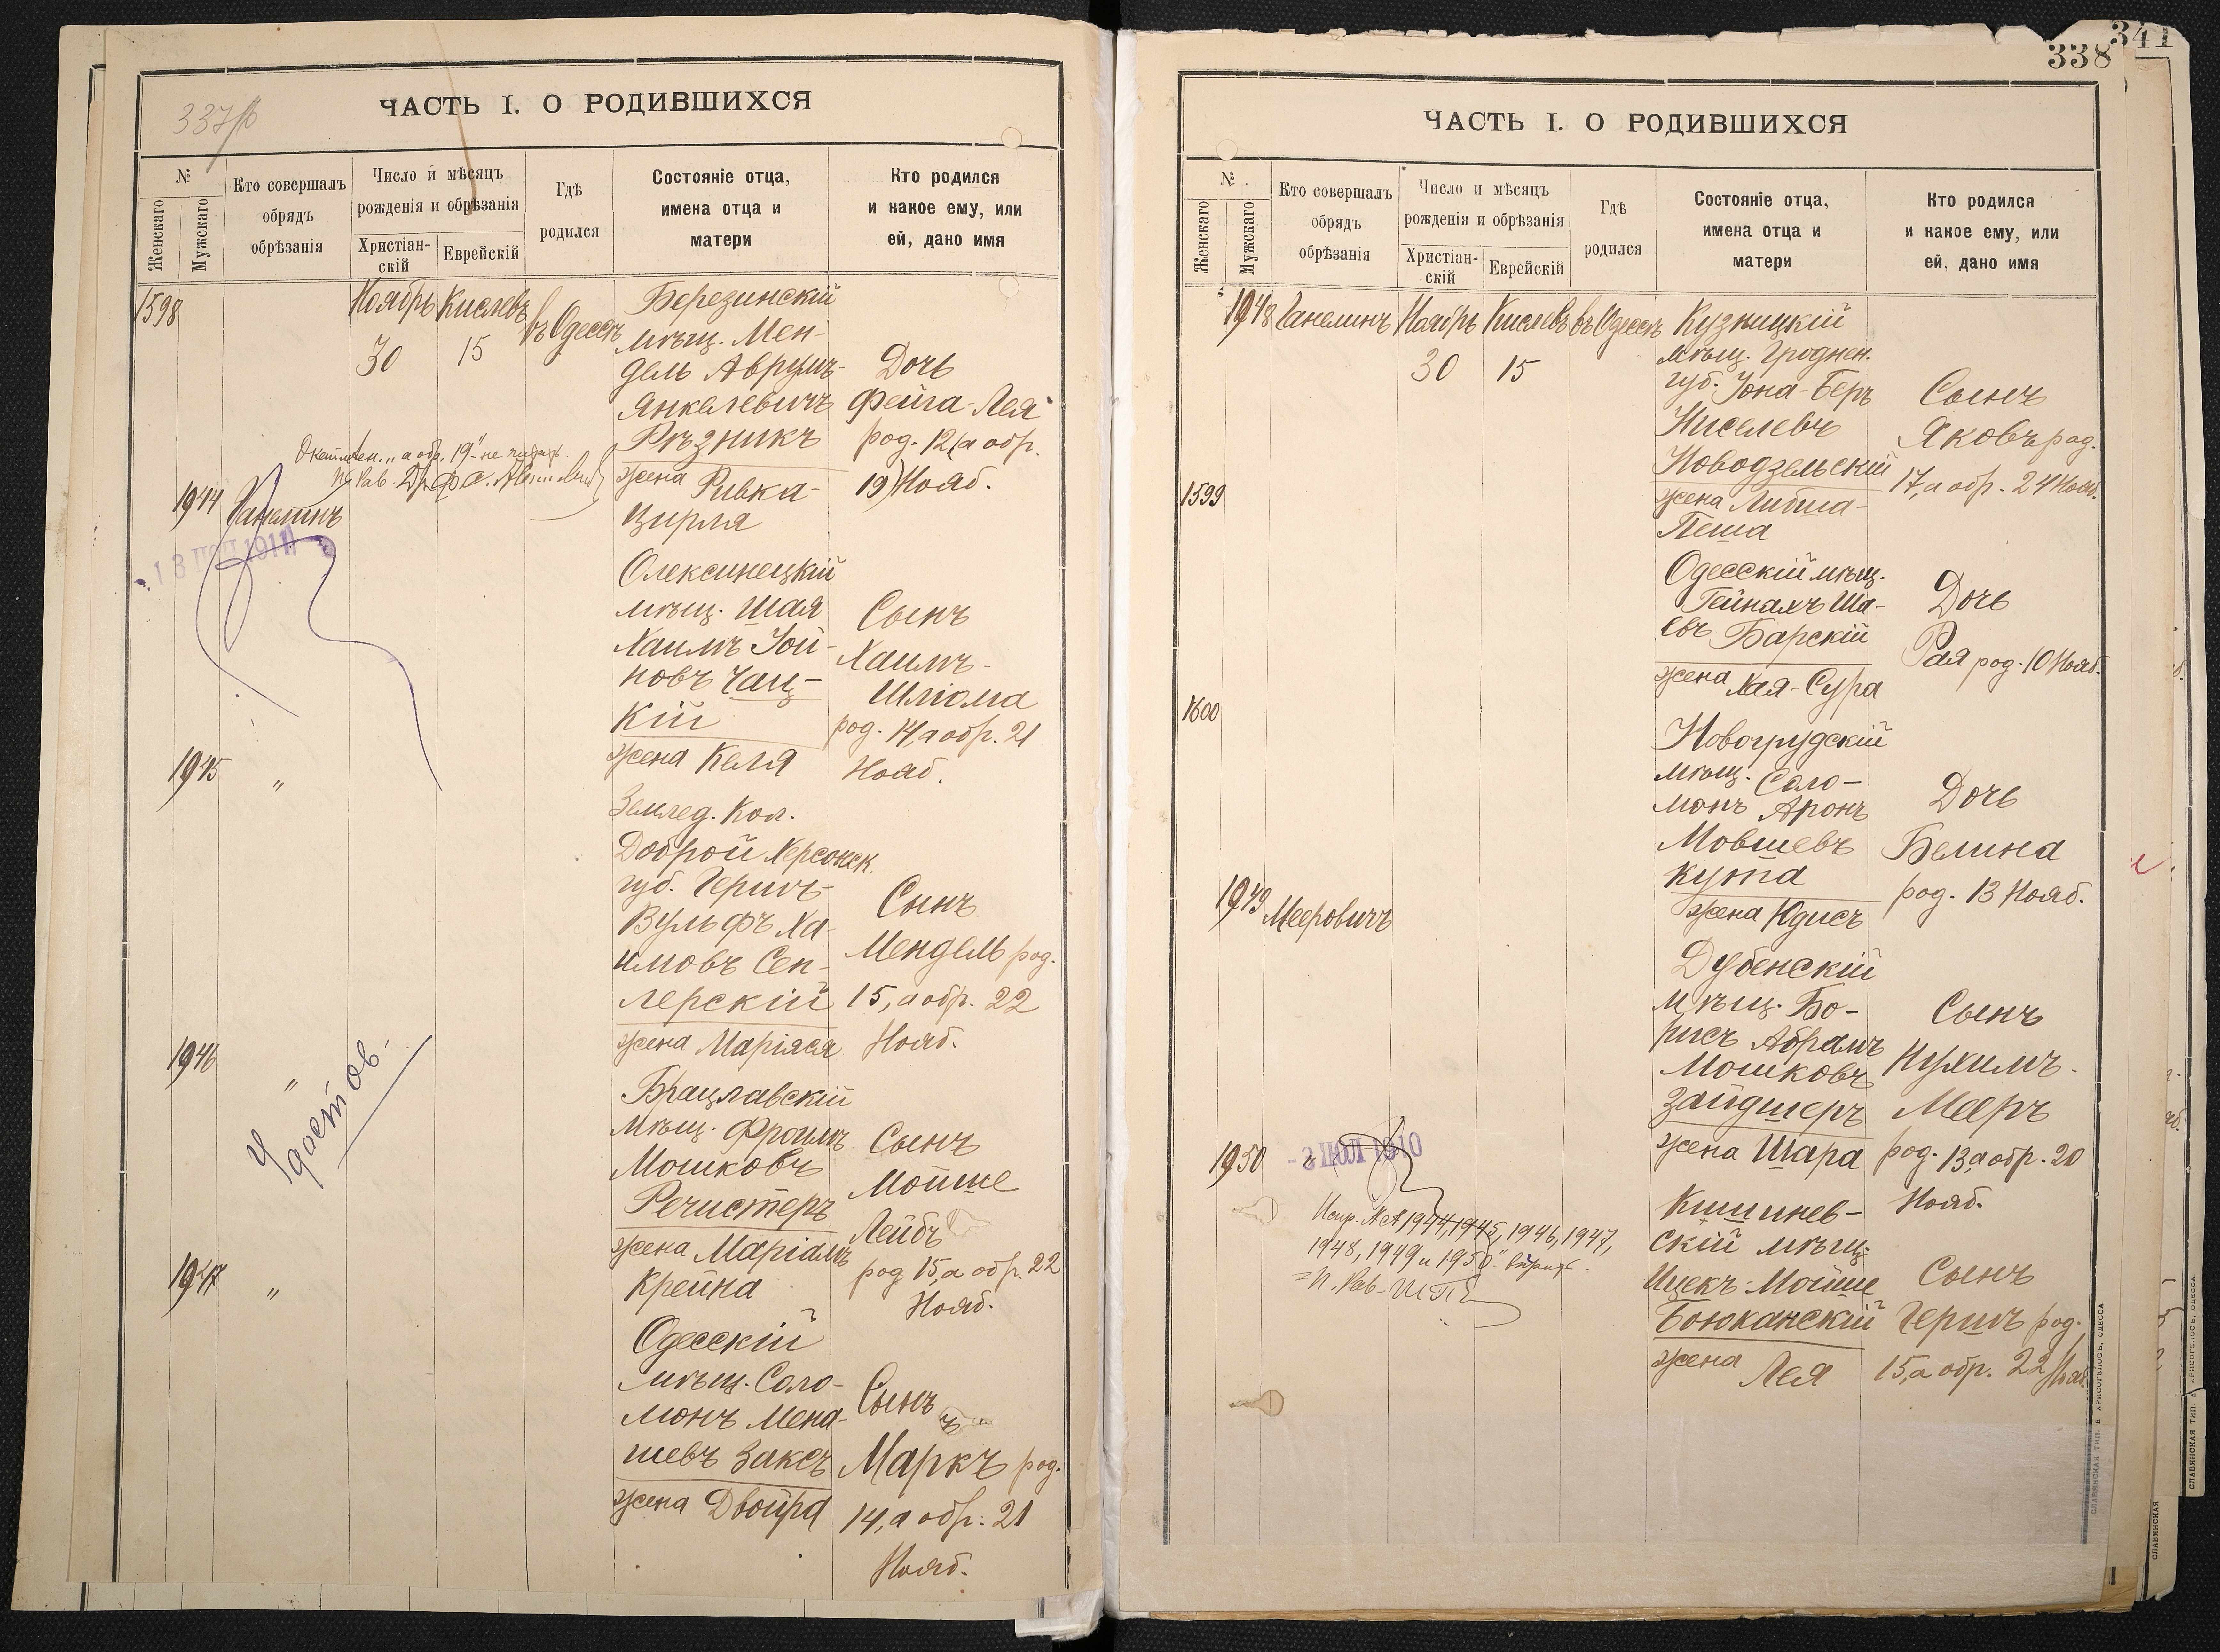 ЧАСТЬ I. О РОДИВШИХСЯ
№
Женскаго
Мужскаго
Кто совершалъ
обрядъ
обрѣзанія
Число и мѣсяцъ
рожденія и обрѣзанія
Христіан-
скій
Еврейскій
Гдѣ
родился
Состояніе отца,
имена отца и
матери
Кто родился
и какое ему, или
ей, дано имя
1598
Ноябрь Кислевъ въ Одессѣ
30 15
Березинскій
мѣщ. Мен-
дель Аврумъ-
Янкелевичъ
Рѣзникъ
жена Ривка-
Цирля
Дочь
Фейга-Лея
род. 12 (а обр.
19) Нояб.
"а обр. 19" не читать.
1944 Ханелинъ
13 ПОЛ 1911
Олексинецкій
мѣщ. Шая
Хаимъ Іой-
новъ Чац-
кій
жена Келя
Сынъ
Хаимъ-
Шліома
род. 14, а обр. 21
Нояб.
1945 "
Землед. Кол.
Доброй Херсонск.
губ. Гершъ-
Вульфъ Ха-
имовъ Сен-
дерскій
жена Маріяся
Сынъ
Мендель род.
15, а обр. 22
Нояб.
1946 "
Удостов.
Брацлавскій
мѣщ. Фроимъ
Мошковъ
Речистеръ
жена Маріамъ
Крейна
Сынъ
Мойше
Лейбъ
род. 15, а обр. 22
Нояб.
1947 "
Одесскій
мѣщ. Соло-
монъ Мена-
шевъ Заксъ
жена Двойра
Сынъ
Маркъ род.
14, а обр. 21
Нояб.
341
338
ЧАСТЬ I. О РОДИВШИХСЯ
№
Женскаго
Мужскаго
Кто совершалъ
обрядъ
обрѣзанія
Число и мѣсяцъ
рожденія и обрѣзанія
Христіан-
скій
Еврейскій
Гдѣ
родился
Состояніе отца,
имена отца и
матери
Кто родился
и какое ему, или
ей, дано имя
1948 Ханелинъ Ноябрь Кислевъ въ Одессѣ
30 15
Кузницкій
мѣщ. Гроднен.
губ. Іона-Беръ
Ниселевъ
Новодзельскій
жена Либша-
Пеша
Сынъ
Яковъ род.
17, а обр. 24 Нояб.
1599
Одесскій мѣщ.
Гейнахъ Ша-
евъ Барскій
жена Хая-Сура
Дочь
Рая род. 10 Нояб.
1600
Новогрудскій
мѣщ. Соло-
монъ Аронъ
Мовшевъ
Кута
жена Юдисъ
Дочь
Белина
род. 13 Нояб.
1949 Мееровичъ
Дубенскій
мѣщ. Бо-
рисъ Абрамъ
Мошковъ
Зайдшеръ
жена Шара
Сынъ
Нухимъ-
Мееръ
род. 13, а обр. 20
Нояб.
1950 "
3 ПОЛ 1910
Испр. №№ 1944, 1945, 1946, 1947,
1948, 1949 и 1950
Кишинев-
скій мѣщ.
Ицекъ-Мойше
Боюканскій
жена Лея
Сынъ
Гершъ род.
15, а обр. 22 Нояб.
СЛАВЯНСКАЯ ТИП. Е. ХРИСОГЕЛОСЪ, ОДЕССА